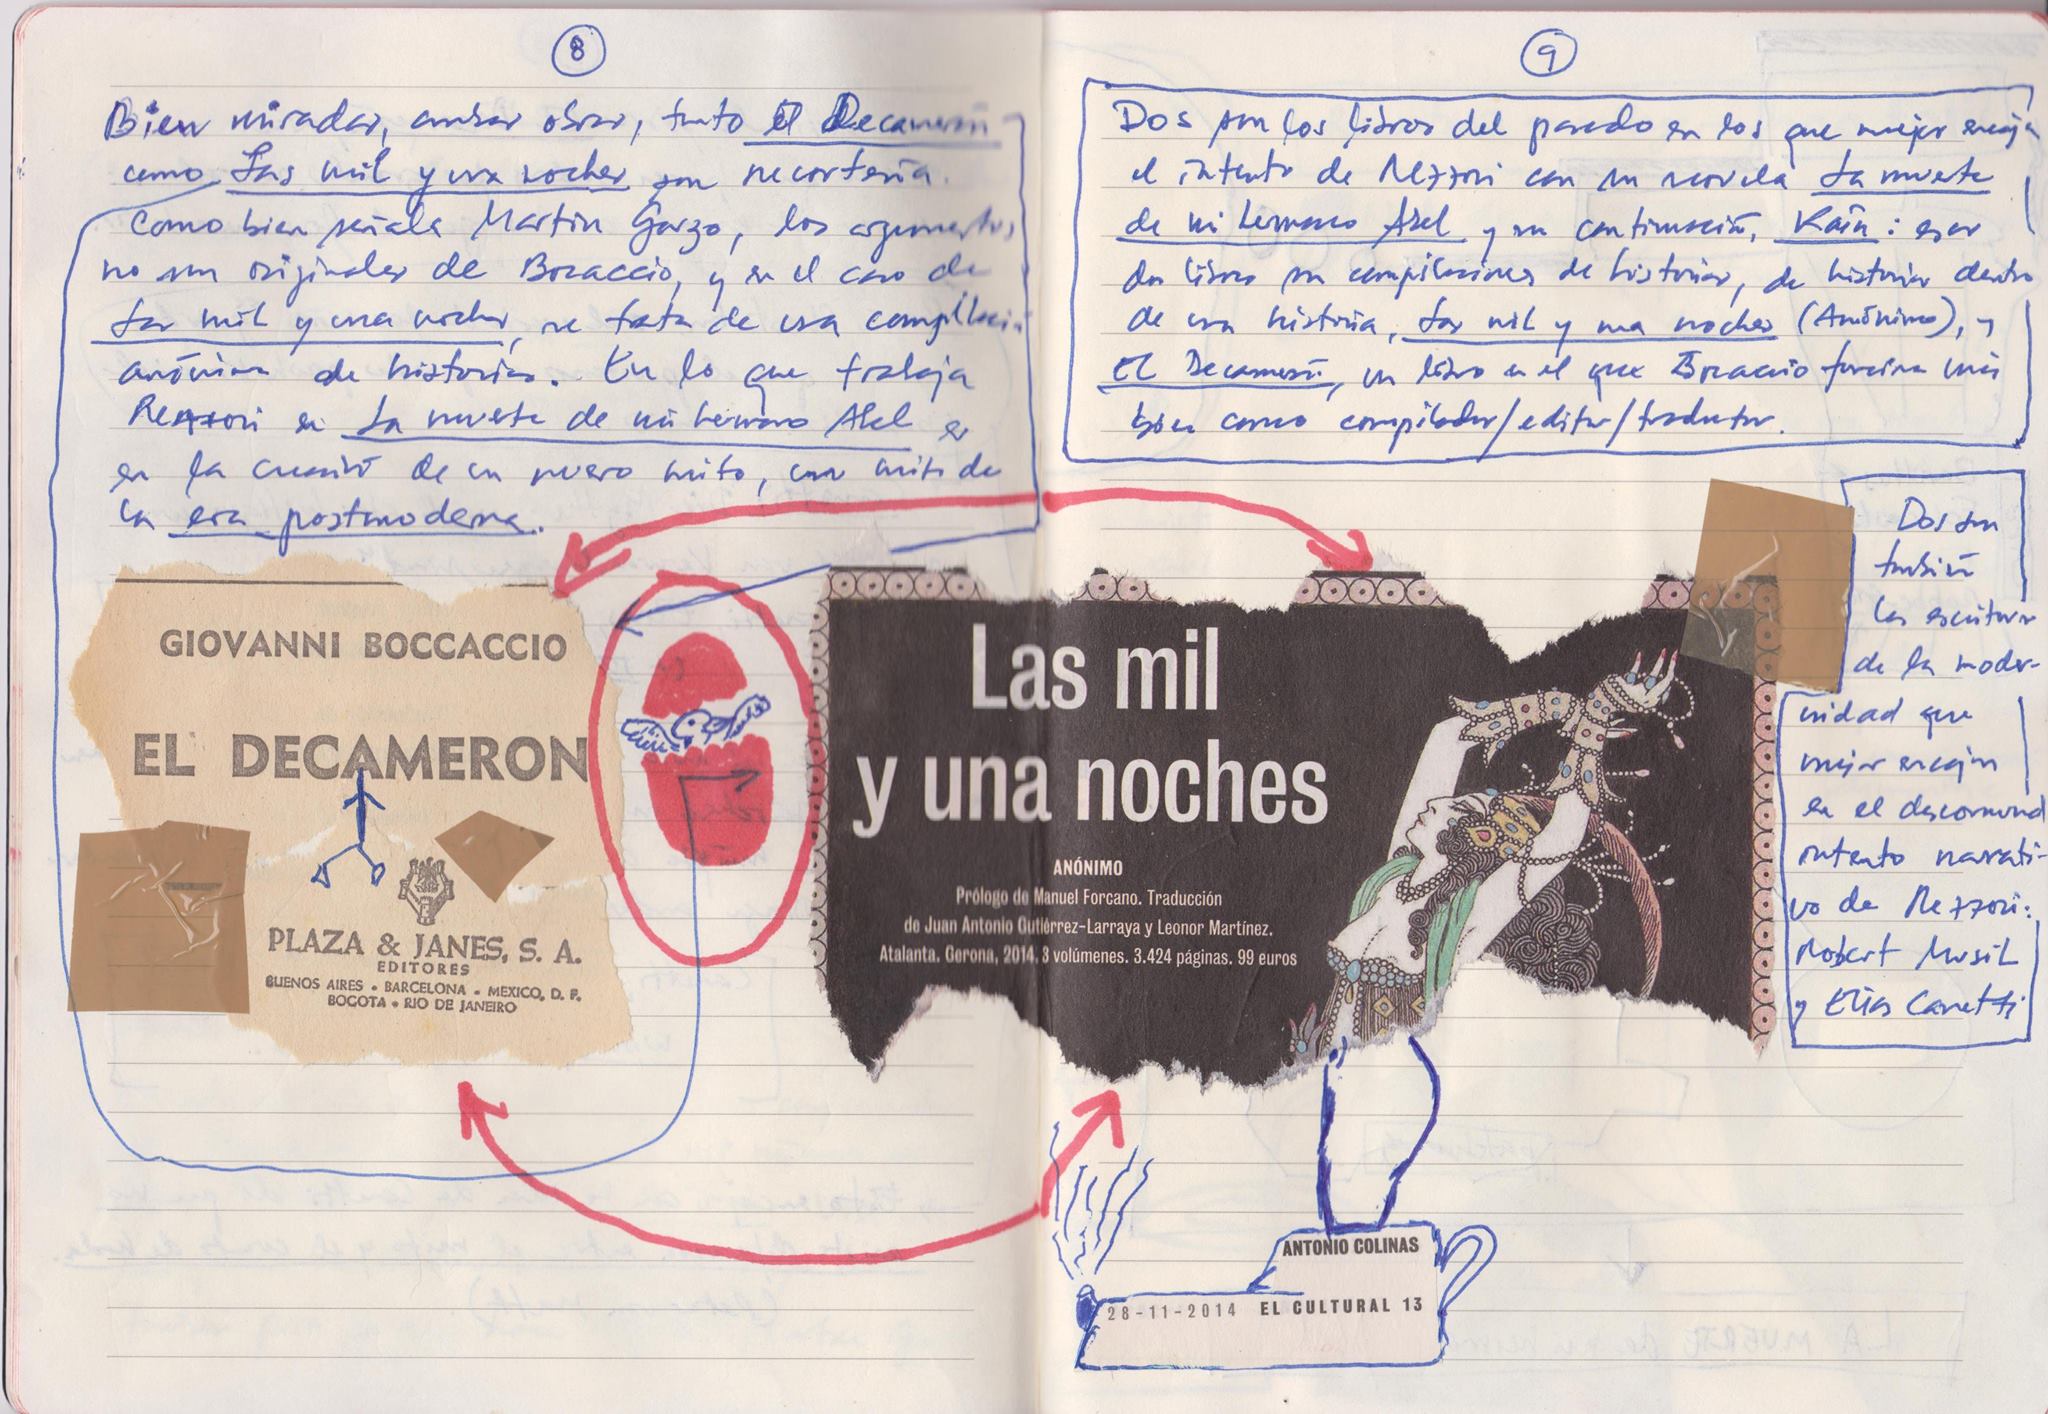 8
Bien miradas, ambas obras, tanto El Decamerón
como Las mil y una noches son recortería.
Como bien señala Martín Garzo, los argumentos
no son originales de Bocaccio, y en el caso de
Las mil y una noches, se trata de una compilación
anónima de historias. En lo que trabaja
Rezzori en La muerte de mi hermano Abel es
en la creación de un nuevo mito, un mito de
la era postmoderna.
GIOVANNI BOCCACCIO
EL DECAMERON
PLAZA & JANES, S. A.
EDITORES
BUENOS AIRES - BARCELONA - MEXICO, D. F.
BOGOTA - RIO DE JANEIRO
9
Dos son los libros del pasado en los que mejor encaja
el intento de Rezzori con su novela La muerte
de mi hermano Abel y su continuación, Kaín: esos
dos libros son compilaciones de historias, de historias dentro
de una historia, Las mil y una noches (Anónimo), y
El Decamerón, un libro en el que Bocaccio funciona más
bien como compilador/editor/traductor.
Dos son
también
los escritores
de la moder-
nidad que
mejor encajan
en el descomunal
intento narrati-
vo de Rezzori:
Robert Musil
y Elias Canetti
Las mil
y una noches
ANÓNIMO
Prólogo de Manuel Forcano. Traducción
de Juan Antonio Gutiérrez-Larraya y Leonor Martínez.
Atalanta. Gerona, 2014. 3 volúmenes. 3.424 páginas. 99 euros
ANTONIO COLINAS
28-11-2014 EL CULTURAL 13